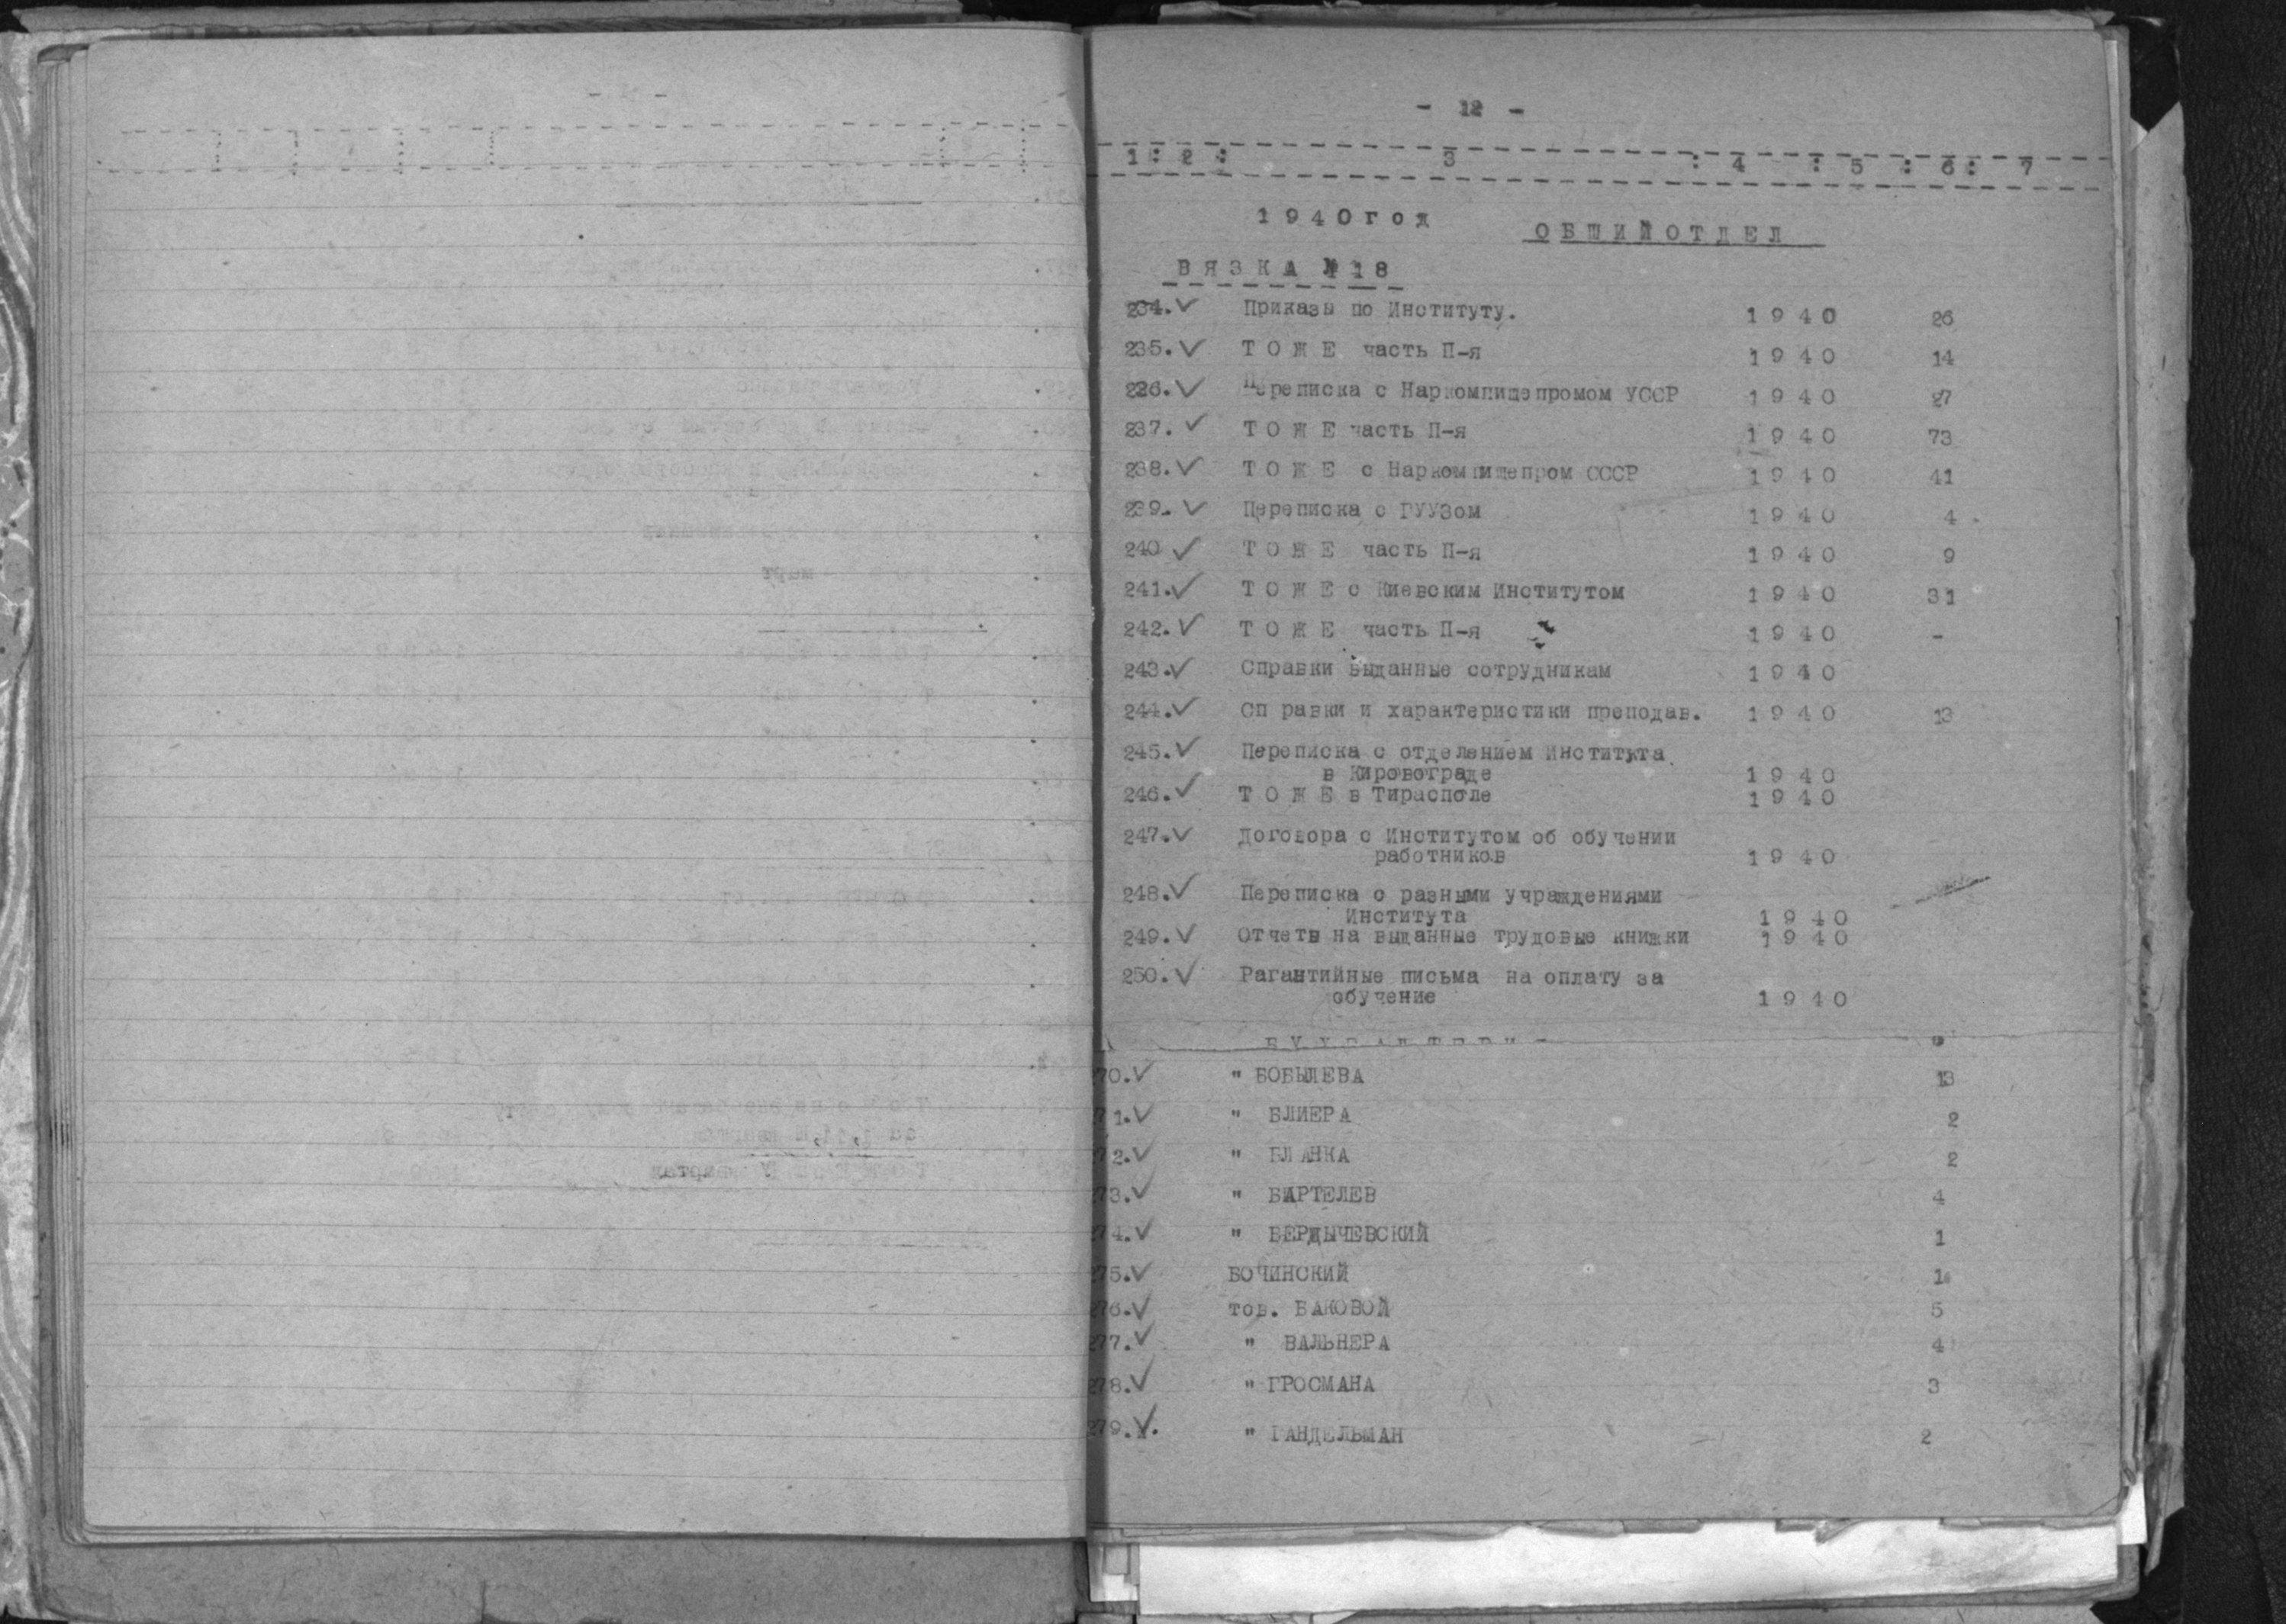 - 12 -
1 : 2 : 3 : 4 : 5 : 6 : 7
1 9 4 0 г о д
О Б Ш И Й О Т Д Е Л
В Я З К А № 18
234. ✓ Приказы по Институту. 1 9 4 0 26
235. ✓ Т О Ж Е часть П-я 1 9 4 0 14
236. ✓ Переписка с Наркомпищепромом УССР 1 9 4 0 27
237. ✓ Т О Ж Е часть П-я 1 9 4 0 73
238. ✓ Т О Ж Е с Наркомпищепром СССР 1 9 4 0 41
239. ✓ Переписка с ГУУЗом 1 9 4 0 4
240 ✓ Т О Ж Е часть П-я 1 9 4 0 9
241. ✓ Т О Ж Е с Киевским Институтом 1 9 4 0 31
242. ✓ Т О Ж Е часть П-я 1 9 4 0 -
243. ✓ Справки выданные сотрудникам 1 9 4 0
244. ✓ Сп равки и характеристики преподав. 1 9 4 0 13
245. ✓ Переписка с отделением Института
в Кировограде 1 9 4 0
246. ✓ Т О Ж Е в Тирасполе 1 9 4 0
247. ✓ Договора с Институтом об обучении
работников 1 9 4 0
248. ✓ Переписка с разными учраждениями
Института 1 9 4 0
249. ✓ Отчеты на выданные трудовые книжки 1 9 4 0
250. ✓ Рагантийные письма на оплату за
обучение 1 9 4 0
270. ✓ " БОБЫЛЕВА 13
271. ✓ " БЛИЕРА 2
272. ✓ " БЛАНКА 2
273. ✓ " БАРТЕЛЕВ 4
274. ✓ " БЕРДЫЧЕВСКИЙ 1
275. ✓ БОЧИНСКИЙ 1
276. ✓ тов. БАКОВОЙ 5
277. ✓ " ВАЛЬНЕРА 4
278. ✓ " ГРОСМАНА 3
279. ✓. " ГАНДЕЛЬМАН 2